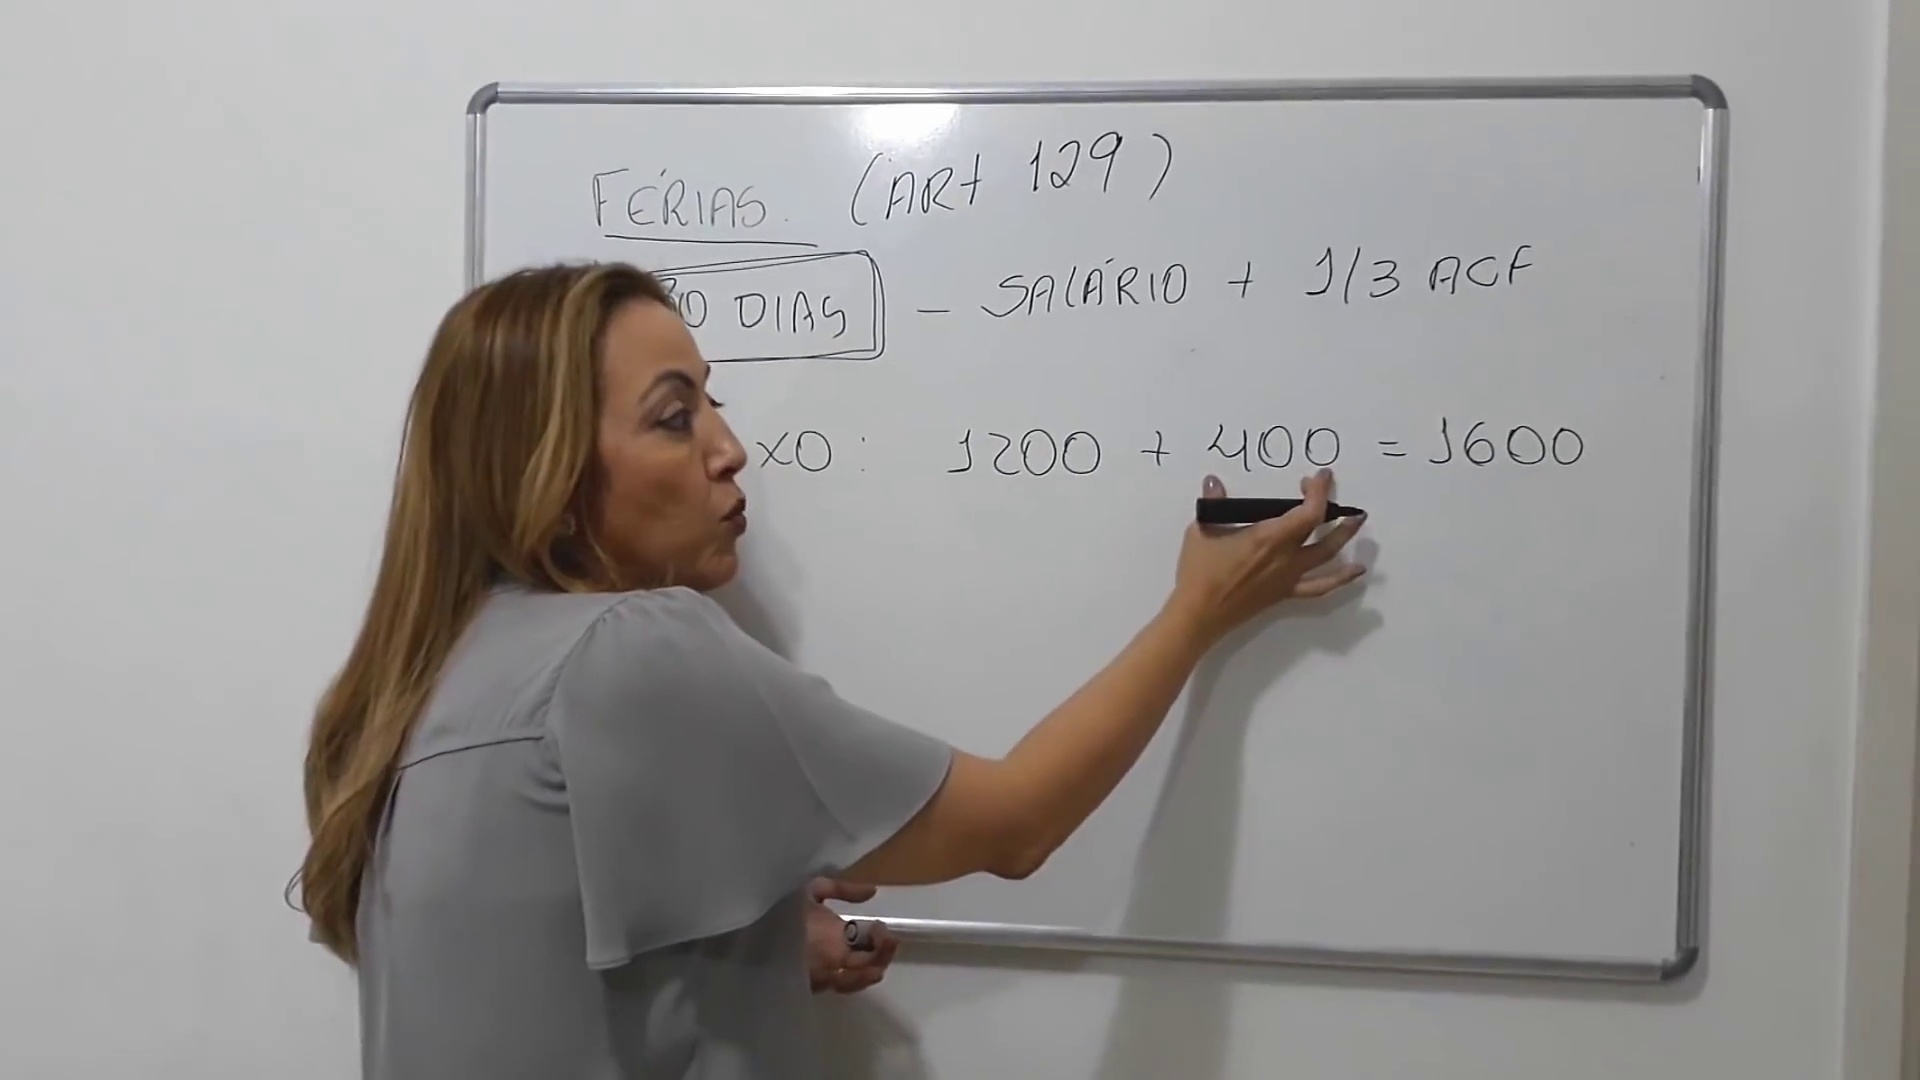 FÉRIAS. (ART 129)
30 DIAS - SALÁRIO + 1/3 ACF
XO: 1200 + 400 = 1600